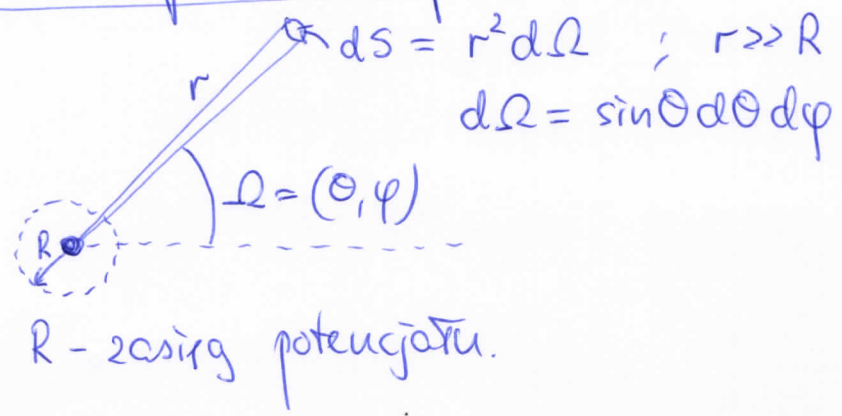 dS = r² dΩ ; r >> R
r
dΩ = sinθ dθ dφ
Ω = (θ, φ)
R
R - zasięg potencjału.